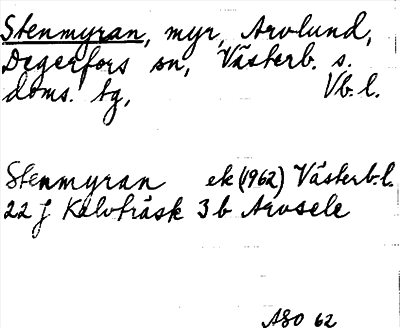 Stenmyran, myr, Arvlund,
Degerfors sn, Västerb. s.
doms. tg, Vb. l.
Stenmyran ek (1962) Västerb. l.
22 J Kalvträsk 3 b Arvsele
ASO 62